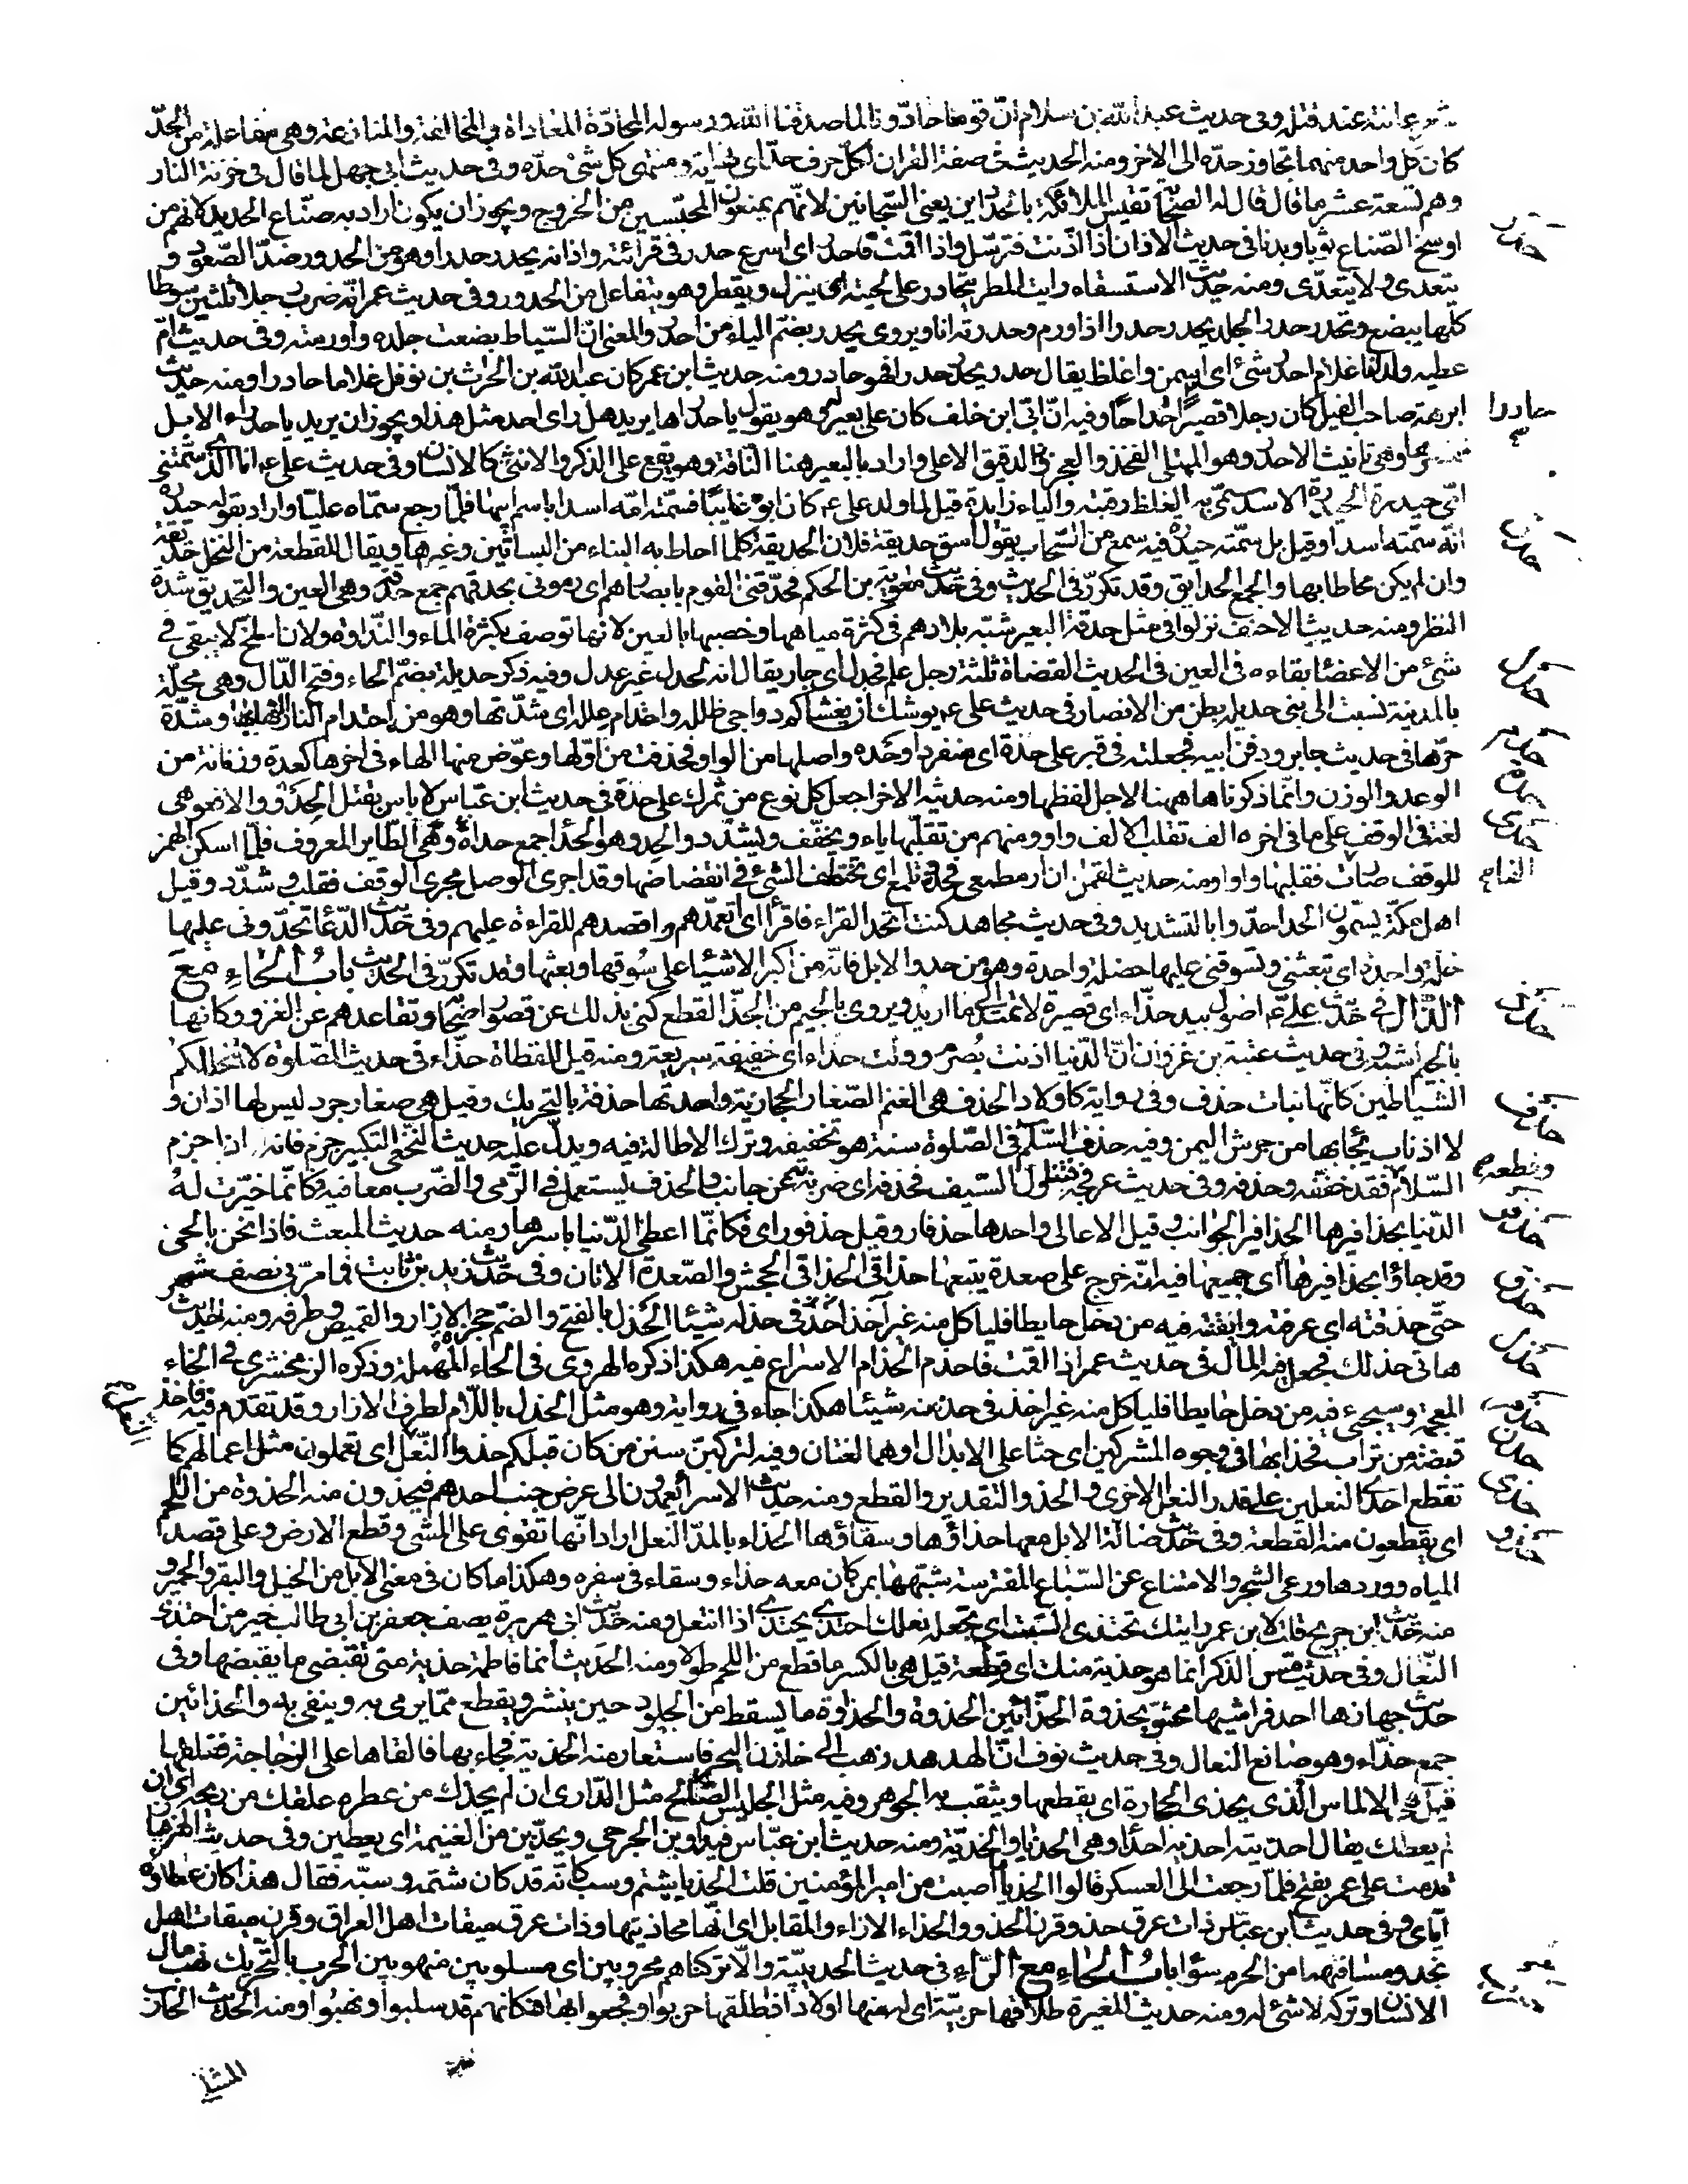 شعر عانته عند قتله وفى حديث عبد الله بن سلام انّ قومنا حادّونا لما صدقنا الله ورسوله المحادّة المعاداة فى المخالفة والمنازعة وهى مفاعلة من الحدّ
كان كل واحد منهما تجاوز حدّه الى الاخر ومنه الحديث فى صفة القران لكلّ حرف حدّ اى نهاية ومنتهى كل شىء حدّه وفى حديث ابى جهل لما قال فى خزنة النار
وهم تسعة عشر ما قال قال له الصحابة تقيس الملائكة بالحدّادين يعنى السّجانين لانّهم يمنعون المحبّسين من الخروج ويجوز ان يكون اراد به صنّاع الحديد لانهم من
حدر
اوسخ الصّناع ثوبا وبدنا فى حديث الاذان اذا اذّنت فترسّل واذا اقمت فاحدر اى اسرع حدر فى قرائته واذانه يحدر حدرا وهو من الحدور ضدّ الصّعود و
يتعدى ولا يتعدّى ومنه حديث الاستسقاء رايت المطر يتحادر على لحيته اى ينزل ويقطر وهو يتفاعل من الحدور وفى حديث عمر انّه ضرب رجلا ثلثين سوطا
كلها يبضع ويحدر حدر الجلد يحدر حدرا اذا ورم وحدرته انا ويروى يحدر بضمّ الياء من احدر والمعنى انّ السّياط بضعت جلده واورمته وفى حديث امّ
عطيه ولد لنا غلام احدر شىء اى اسمن واغلظ يقال حدر يحدر حدرا فهو حادر ومنه حديث ابن عمر كان عبد الله بن الحارث بن نوفل غلاما حادرا ومنه حديث
حادرا
ابرهة صاحب الفيل كان رجلا قصيرا حادرا وفيه انّ ابىّ ابن خلف كان على بعير له وهو يقول يا حدراها يريد هل راى احد مثل هذا ويجوز ان يريد يا حدراء الابل
فقصرها وهى تانيث الاحدر وهو الممتلى الفخذ والعجز الدقيق الاعلى واراد بالبعير ههنا النّاقة وهو يقع على الذكر والانثى كالانسان وفى حديث على ع انا الّذى سمّتنى
امّى حيدرة الحيدرة الاسد سمّى به لغلظ رقبته والياء زايدة قيل لما ولد على ع كان ابوه غايبًا فسمّته امّه اسدا باسم ابيها فلمّا رجع سمّاه عليّا واراد بقوله حيدرة
حدق
انّه سمّته اسدا وقيل بل سمّته حيدرة فيه سمع من السّحاب يقول اسق حديقة فلان الحديقة كلما احاط به البناء من البساتين وغيرها ويقال للقطعة من النخل حديقة
وان لم يكن محاطا بها والجمع الحدايق وقد تكرّر فى الحديث وفى حديث معوية بن الحكم فحدّقنى القوم بابصارهم اى رمونى بحدقهم جمع حدقة وهى العين والتحديق شدّة
النظر ومنه حديث الاحنف نزلوا فى مثل حدقة البعير شبّه بلادهم فى كثرة مياهها وخصبها بالعين لانها توصف بكثرة الماء والنّداوة ولان المخّ لا يبقى فى
حدل
شىء من الاعضا بقاءه فى العين فى الحديث القضاة ثلثة رجل علم فحدل اى جار يقال انه لحدل غير عدل وفيه ذكر حديلة بضمّ الحاء وفتح الدّال وهى محلّة
بالمدينة نسبت الى بنى حديلة بطن من الانصار فى حديث على ع يوشك ان يغشاكم دواجى ظلله واحتدام علله اى شدّتها وهو من احتدام النار التهابها وشدّة
حدم
حرّها فى حديث جابر ودفن ابيه فجعلته فى قبر على حدة اى منفردا وحده واصلها من الواو فحذفت من اوّلها وعوّض منها الهاء فى اخرها كعدة وزنة من
حدة
الوعد والوزن وانّما ذكرناها ههنا لاجل لفظها ومنه حديثه الاخر اجعل كل نوع من تمرك على حدة فى حديث ابن عبّاس لا باس بقتل الحدوّ والافعو هى
حدى
لغة فى الوقف على ما فى اخره الف تقلب الالف واوا ومنهم من تقلبها ياء ويخفّف ويشدّد والحدو هو الحدأ جمع حدأة وهى الطّاير المعروف فلمّا اسكن الهمز
للوقف صارت فقلبها واوا ومنه حديث لقمن ان ار مطمعى فحدوّ تلمّع اى تختطف الشىء فى انقضاضها وقد اجرى الوصل مجرى الوقف فقلب وشدّد وقيل
اهل مكّة يسمّون الحدا حدّوا بالتشديد وفى حديث مجاهد كنت اتحدّا القراء فاقرأ اى اتعمّدهم واقصدهم للقراءة عليهم وفى حديث الدّعا تحدونى عليها
خلّة واحدة اى تبعثنى وتسوقنى عليها خصلة واحدة وهو من حدو الابل فانّه من اكبر الاشياء على سوقها وبعثها وقد تكرّر فى الحديث بابُ الحَاءِ مَعَ
حذذ
الذّال فى حديث علىّ ع اصول بيد حذّاء اى قصيرة لا تمتدّ الى ما اريد ويروى بالجيم من الجذّ القطع كنى بذلك عن قصور اصحابه وتقاعدهم عن الغزو وكانها
بالجيم اشبه وفى حديث عتبة بن غزوان انّ الدّنيا اذنت بصرم وولّت حذّاء اى خفيفة سريعة ومنه قيل للقطاة حذّاء فى حديث الصّلوة لا تتخللكم
حذف
الشّياطين كانّها بنات حذف وفى رواية كاولاد الحذف هى الغنم الصّغار الحجازية واحدتها حذفة بالتحريك وقيل هى صغار جرد ليس لها اذان و
لا اذناب يجاء بها من جرش اليمن وفيه حذف السّلام فى الصّلوة سنة هو تخفيفه وترك الاطالة فيه ويدلّ عليه حديث النّخعى التكبير جزم فانه اذا جزم
وقطعه
السّلام فقد خفّفه وحذفه وفى حديث عرفجة فتناول السّيف فحذفه اى ضربه عن جانب والحذف يستعمل فى الرّمى والضّرب معا فيه فكانّما خيّرت له
حذفر
الدّنيا بحذافيرها الحذافير الجوانب وقيل الاعالى واحدها حذفار وقيل حذفور اى فكانّما اعطى الدّنيا باسرها ومنه حديث المبعث فاذا نحن بالحىّ
حذق
وقد جاؤا بحذافيرها اى جميعها فيه انّه خرج على صعدة يتبعها حذاقىّ الحذاقىّ الجحش والصّعدة الاتان وفى حديث زيد بن ثابت فما مرّ بى نصف شهر
حذل
حتّى حذقته اى عرفته واتقنته فيه من دخل حايطا فلياكل منه غير اخذ فى حذله شيئا الحذل بالفتح والضّم حجزة الازار والقميص وطرفه ومنه الحديث
هاتى حذلك فجعل فيه المال فى حديث عمر اذا اقمت فاحذم الحذم الاسراع فيه هكذا ذكره الهروى فى الحاء المهملة وذكره الزمخشرى فى الخاء
حذم
حذن
المعجمة وسيجىء فيه من دخل حايطا فلياكل منه غير اخذ فى حذنه شيئا هكذا جاء فى رواية وهو مثل الحذل باللّام لطرف الازار وقد تقدّم فيه فاخذ
قبضة من تراب فحذا بها فى وجوه المشركين اى حثا على الابدال او هما لغتان وفيه لتركبنّ سنن من كان قبلكم حذو النّعل اى تعملون مثل اعمالهم كما
حذى
تقطع احدى النعلين على قدر النعل الاخرى والحذو التقدير والقطع ومنه حديث الاسراء يعمدون الى عرض جنب احدهم فيحذون منه الحذوة من اللحم
حذو
اى يقطعون منه القطعة وفى حديث ضالة الابل معها حذاؤها وسقاؤها الحذاء بالمدّ النعل اراد انّها تقوى على المشى وقطع الارض وعلى قصد
المياه وورودها ورعى الشجر والامتناع عن السّباع المفترسة شبّهها بمن كان معه حذاء وسقاء فى سفره وهكذا ما كان فى معنى الابل من الخيل والبقر والحمير
منه حديث ابن جريج قلت لابن عمر رايتك تحتذى السّبت اى تجعله نعلك احتذى يحتذى اذا انتعل ومنه حديث ابى هريرة يصف جعفر بن ابى طالب خير من احتذى
النّعال وفى حديث مسّ الذكر انما هو حذية منك اى قطعة قيل هى بالكسر ما قطع من اللحم طولا ومنه الحديث انما فاطمة حذية منّى تقبضنى ما يقبضها وفى
حديث جهازها احد فراشيها محشوّ بحذوة الحذّائين الحذوة والحذاوة ما يسقط من الجلود حين ينشر ويقطع ممّا يرمى به وينفى به والحذائين
جمع حذّاء وهو صانع النعال وفى حديث نوف انّ الهدهد ذهب الى خازن البحر فاستعار منه الحذية فجاء بها فالقاها على الزجاجة ففلقها
قيل هى الالماس الّذى يحذى الحجارة اى يقطعها ويثقب به الجوهر وفيه مثل الجليس الصّالح مثل الدّارى ان لم يحذك من عطره علقك من ريحه اى ان
لم يعطك يقال احذيته احذيه احذاء وهى الحذيا والحذيّة ومنه حديث ابن عبّاس فيداوين الجرحى ويحذين من الغنيمة اى يعطين وفى حديث الهزهاز
قدمت على عمر بفتح فلمّا رجعت الى العسكر قالوا الحذيا ما اصبت من امير المؤمنين قلت الحذيا شتم وسبّ كانّه قد كان شتمه وسبّه فقال هذا كان عطاؤه
ايّاى وفى حديث ابن عبّاس ذات عرق حذو قرن الحذو والحذاء الازاء والمقابل اى انّها محاذيتها وذات عرق ميقات اهل العراق وقرن ميقات اهل
نجد ومسافتهما من الحرم سوآ بابُ الحَاءِ مَعَ الرّاءِ فى حديث الحديبيّة والّا تركناهم محروبين اى مسلوبين منهوبين الحرب بالتّحريك نهب مال
حرب
الانسان وتركه لا شىء له ومنه حديث المغيرة طلاقها حربيّة اى له منها اولاد اذا طلقها حربوا وفجعوا بها فكانهم قد سلبوا ونهبوا ومنه الحديث الحارب
المشلح